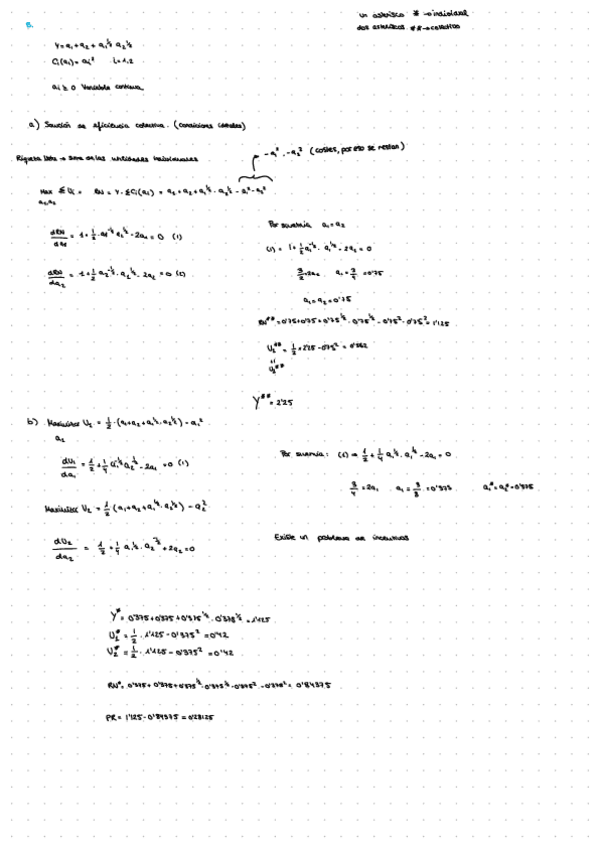 un asterisco * → individual
dos asteriscos ** → colectivo
8.
Y = a₁ + a₂ + a₁^½ a₂^½
Cᵢ(aᵢ) = aᵢ² i = 1,2
aᵢ ≥ 0 Variable continua
a) Solución de eficiencia colectiva. (Condiciones ideales)
Riqueza Neta → suma de las utilidades individuales
→ -a₁² - a₂² (costes, por eso se restan)
Max ΣUᵢ = RN = Y - ΣCᵢ(aᵢ) = a₁ + a₂ + a₁^½ · a₂^½ - a₁² - a₂²
a₁,a₂
dRN/da₁ = 1 + ½ · a₁^-½ a₂^½ - 2a₁ = 0 (1)
dRN/da₂ = 1 + ½ a₂^-½ · a₁^½ - 2a₂ = 0 (2)
Por simetría a₁ = a₂
(1) = 1 + ½ a₁^-½ · a₁^½ - 2a₁ = 0
3/2 = 2a₁ a₁ = 3/4 = 0'75
a₁ = a₂ = 0'75
RN** = 0'75 + 0'75 + 0'75^½ · 0'75^½ - 0'75² - 0'75² = 1'125
U₁** = ½ · 2'25 - 0'75² = 0'562
U₂**
Y** = 2'25
b) Maximizar U₁ = ½ · (a₁ + a₂ + a₁^½ · a₂^½) - a₁²
dU₁/da₁ = ½ + ¼ a₁^-½ a₂^½ - 2a₁ = 0 (1)
Maximizar U₂ = ½ (a₁ + a₂ + a₁^½ · a₂^½) - a₂²
dU₂/da₂ = ½ + ¼ a₁^½ · a₂^-½ + 2a₂ = 0
Por simetría: (1) → ½ + ¼ a₁^-½ · a₁^½ - 2a₁ = 0
3/4 = 2a₁ a₁ = 3/8 = 0'375 a₁* = a₂* = 0'375
Existe un problema de incentivos
Y* = 0'375 + 0'375 + 0'375^½ · 0'375^½ = 1'125
U₁* = ½ · 1'125 - 0'375² = 0'42
U₂* = ½ · 1'125 - 0'375² = 0'42
RN* = 0'375 + 0'375 + 0'375^½ · 0'375^½ - 0'375² - 0'375² = 0'84375
PR = 1'125 - 0'84375 = 0'28125